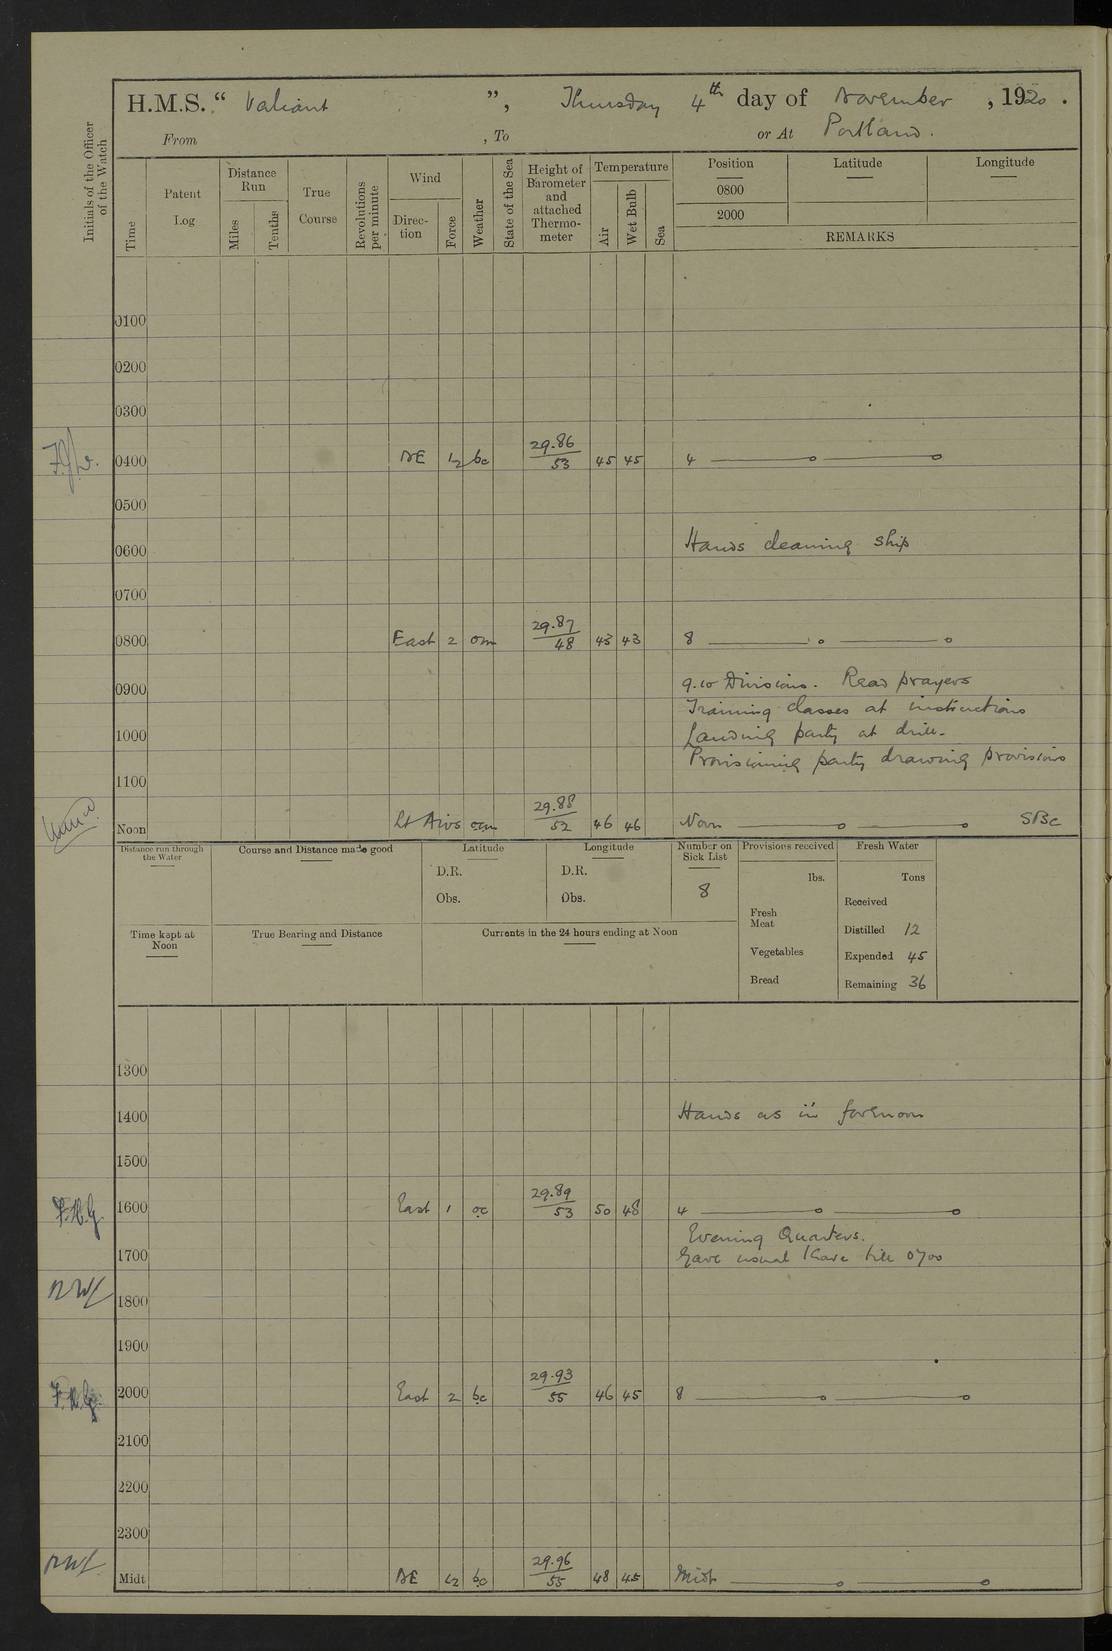 H.M.S. “ Valiant ”, Thursday 4th day of November , 1920 .
From , To or At Portland.
Initials of the Officer of the Watch
Time
Patent Log
Distance Run
Miles
Tenths
True Course
Revolutions per minute
Wind
Direc-tion
Force
Weather
State of the Sea
Height of Barometer and attached Thermo-meter
Temperature
Air
Wet Bulb
Sea
Position Latitude Longitude
0800
2000
REMARKS
0100
0200
0300
0400 NE 1/2 bc 29.86/53 45 45 4
0500
0600 Hands cleaning ship
0700
0800 East 2 om 29.87/48 43 43 8
0900 9.10 Divisions. Read prayers
Training classes at instructions
1000 Landing party at drill.
Provisioning party drawing provisions
1100
Noon Lt Airs om 29.88/52 46 46 Noon SBC
Distance run through the Water
Course and Distance made good
Latitude
D.R.
Obs.
Longitude
D.R.
Obs.
Number on Sick List
8
Provisions received
lbs.
Fresh Meat
Vegetables
Bread
Fresh Water
Tons
Received
Distilled 12
Expended 45
Remaining 36
Time kept at Noon
True Bearing and Distance
Currents in the 24 hours ending at Noon
1300
1400 Hands as in forenoon
1500
F.H.G. 1600 East 1 oc 29.89/53 50 48 4
Evening Quarters.
1700 Gave usual leave till 0700
1800
1900
F.H.G. 2000 East 2 bc 29.93/55 46 45 8
2100
2200
2300
Midt NE 1/2 bc 29.96/55 48 45 Midt